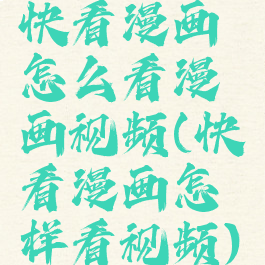 快看漫画
怎么看漫
画视频(快
看漫画怎
样看视频)